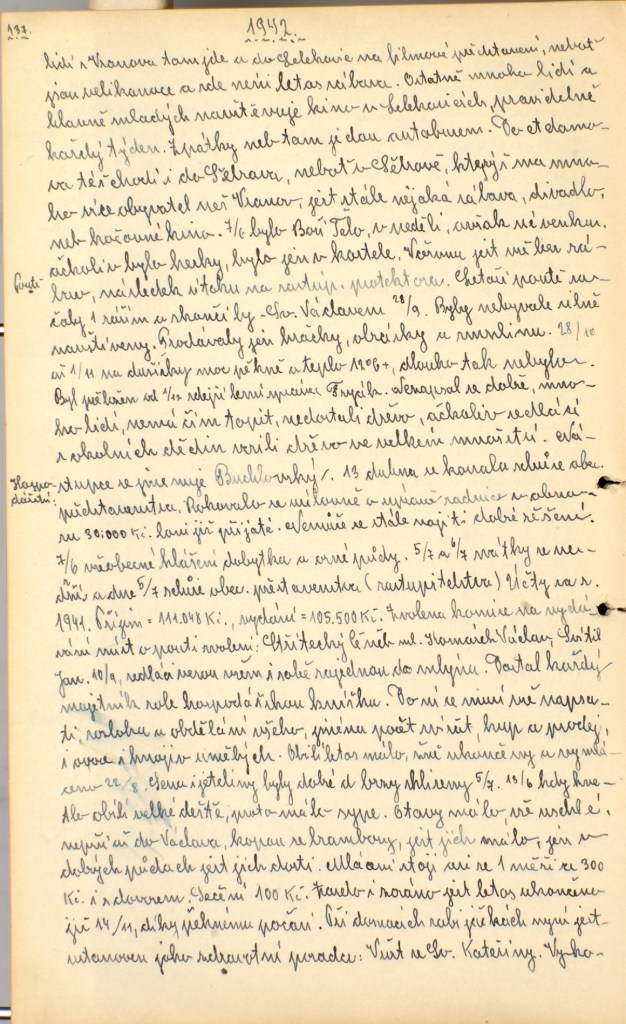 137.
1942.
lidí z Vranova tam jde a do Lelekovic na filmové představení, neboť
jsou velikonoce a zde není letos zábava. Ostatně mnoho lidí a
hlavně mladých navštěvuje kino v Lelekovicích pravidelně
každý týden. Zpátky neb tam jedou autobusem. Do
též chodí i do Šebrova, neboť v Šebrově, který má mno-
ho více obyvatel než Vranov, jest stále nějaká zábava, divadlo,
neb kočovné kino. 7/6 bylo Boží Tělo, v neděli, avšak ne venku,
ačkoliv bylo hezky, bylo jen v kostele. Vůbec jest zá-
Poutě
následek útoku na zastup. protektora. Letoší poutě za-
čaly 1 září a skončí by Sv. Václavem 28/9. Byly nebývale silně
navštíveny. Prodávaly jen hračky, obrázky a zmrzlinu. 28/10
až 1/11 na dušičky moc pěkně a teplo 12°C+, dlouho tak nebylo.
Byl přeložen od 1/12 zdejší lesní správce Fryčák. v době, mno-
ho lidí, nemá čím topit, nedostali dřevo, ačkoliv sedláci
z okolních dědin vozili dřevo ve velkém množství. Ná-
Hospo-
dářství:
stupce se jmenuje Buchlovský. 13 dubna se konala schůze obec.
představenstva. Rokovalo se o úpravě radnice v obno-
su 30.000 Kč. loni již přijaté. Nemůže se stále najíti dobré řešení.
7/6 všeobecné hlášení dobytka a orné půdy. 5/7 a 6/7 svátky se ne-
a dne 5/7 schůze obec. představenstva (zastupitelstva) Účty za r.
1941. Příjem = 111.048 Kč., vydání = 105.500 Kč. Zvolena komise na vydá-
vání míst o pouti zvoleni: Střítecký Čeněk ml. Komárek Václav, Svítil
Jan. 10/9, sedláci vezou všem i sobě najednou do mlýna. Dostal každý
majetník role hospodářskou knížku. Do ní se musí vše napsa-
ti, rozloha a obdělání všeho, jména počet zvířat, kup a prodej,
i ovoce i hnojiv umělých. Obilí letos málo, žně ukončeny a vymlá-
ceno 22/8. Sena i jeteliny byly dobré a brzy sklizeny 5/7. 13/6 kdy kve-
tlo obilí velké deště, proto málo sype. Otavy málo, vše uschlé,
neprší až do Václava, kopou se brambory, jest jich málo, jen v
dobrých půdách jest jich dosti. Mlácení stojí asi se 1 měří za 300
Kč. i s dovozem. Sečení 100 Kč. Zaseto i zoráno jest letos ukončeno
již 14/11, díky pěknému počasí. Při domácích zabijačkách nyní jest
ustanoven jako zdravotní poradce: Vušt ze Sv. Kateřiny. Vyko-